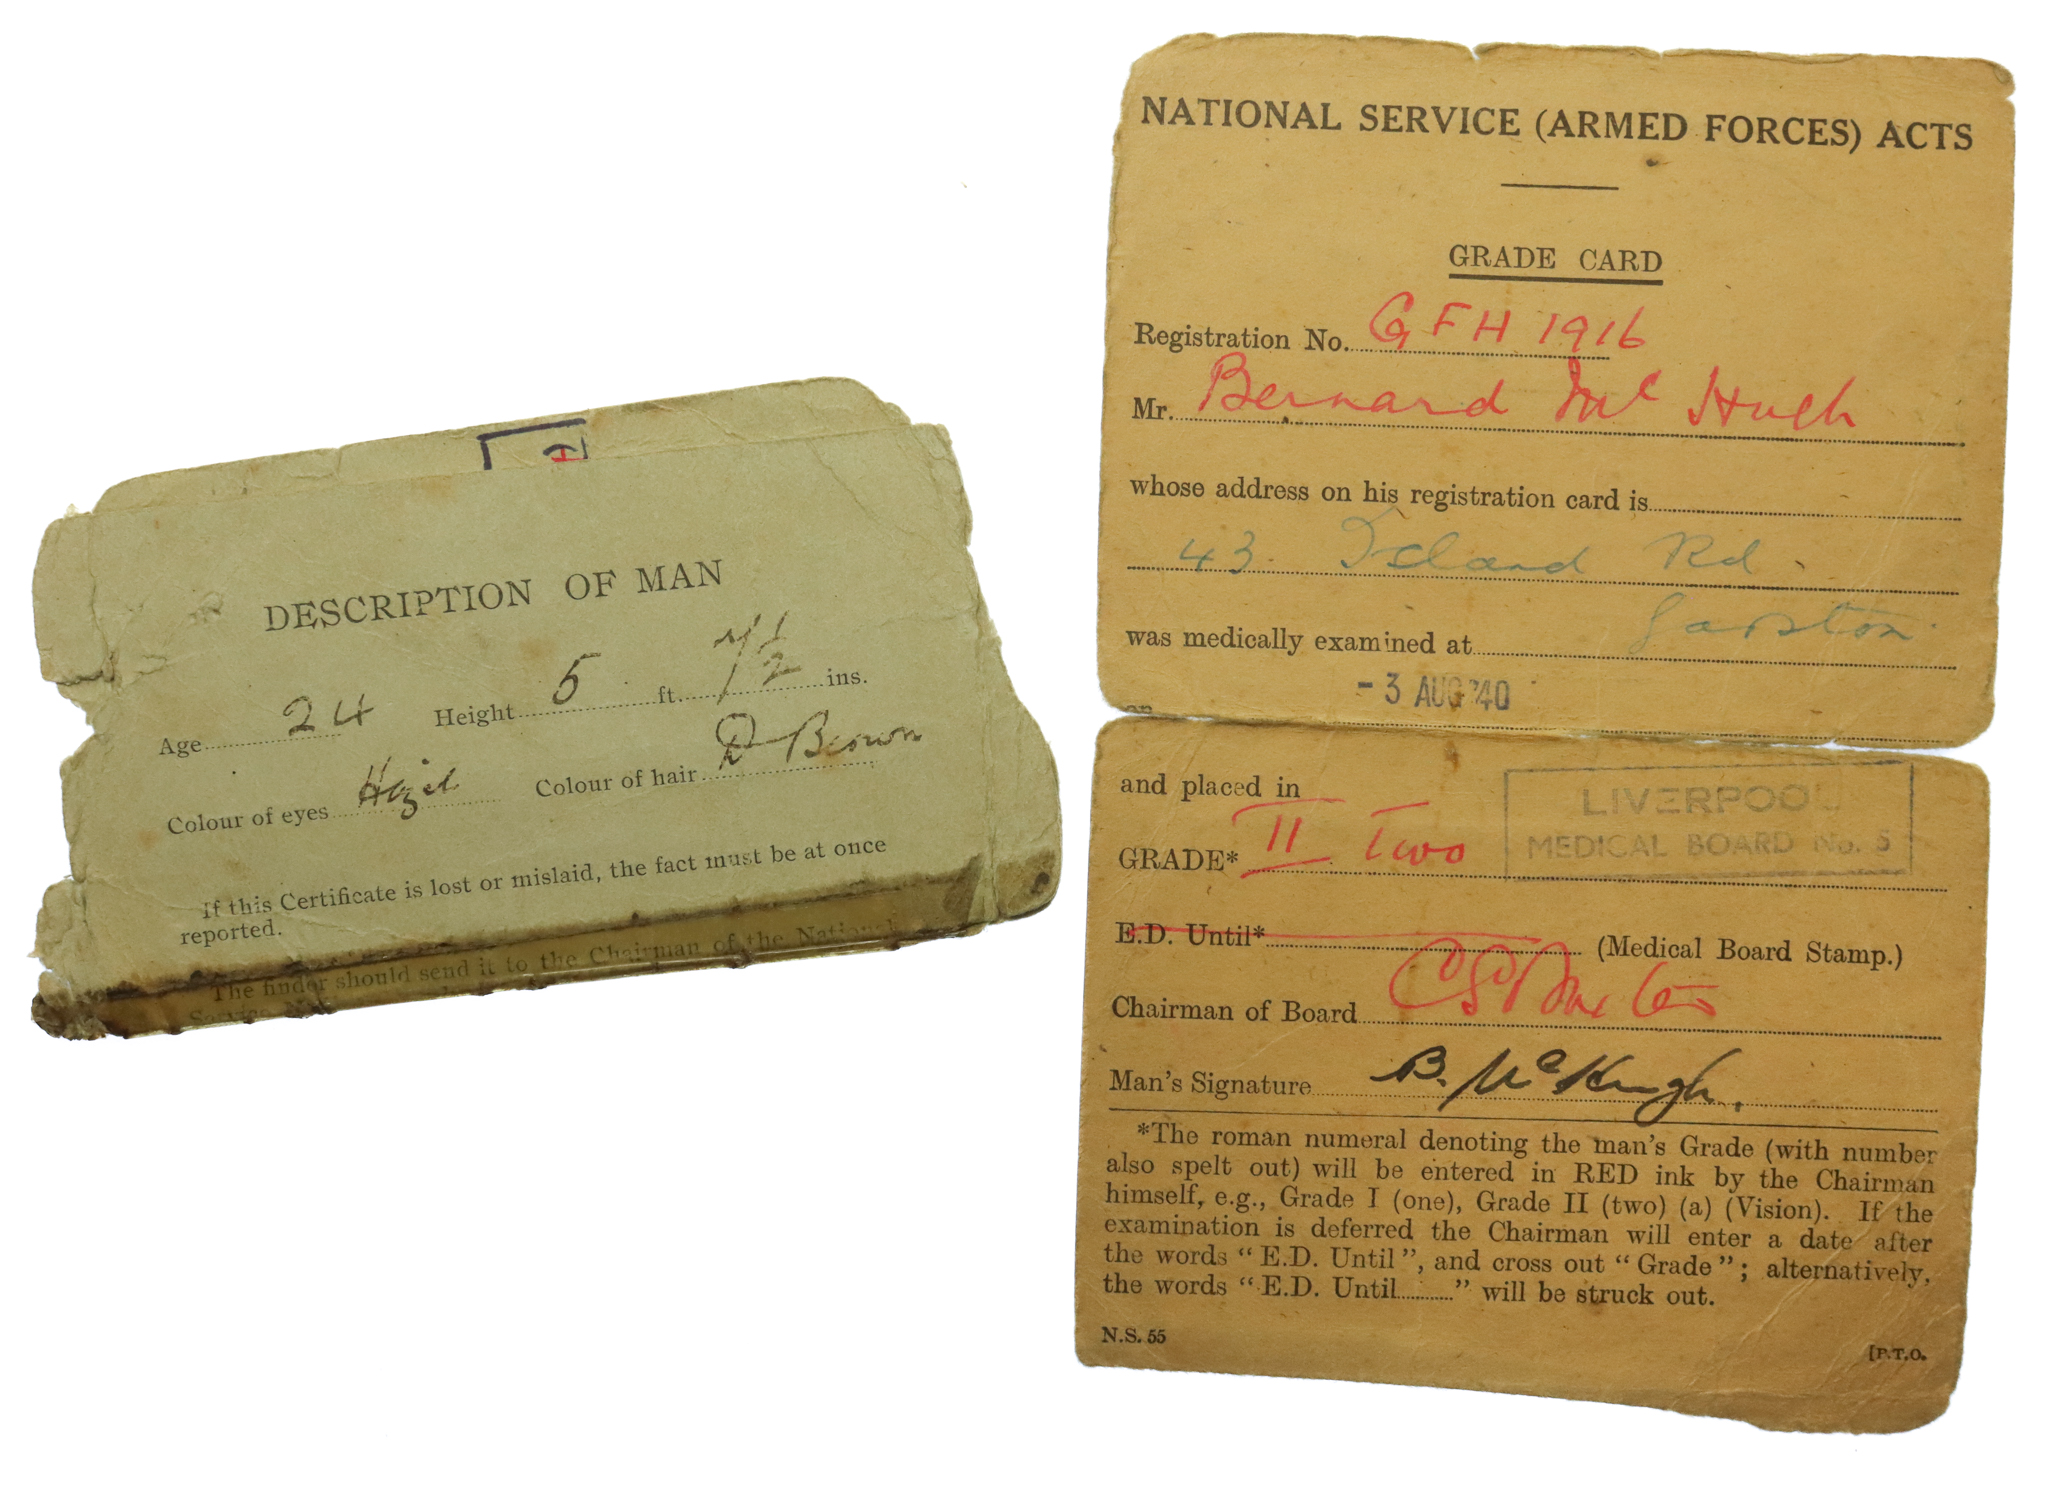 DESCRIPTION OF MAN
Age 24 Height 5 ft. 7½ ins.
Colour of eyes Hazel Colour of hair D Brown
If this Certificate is lost or mislaid, the fact must be at once
reported.
The finder should send it to the Chairman of the National
Service
NATIONAL SERVICE (ARMED FORCES) ACTS
GRADE CARD
Registration No. GFH 1916
Mr. Bernard Mc Hugh
whose address on his registration card is
43. Island Rd.
Garston.
was medically examined at
on - 3 AUG 40
and placed in
LIVERPOOL
MEDICAL BOARD No. 5
GRADE* II Two
E.D. Until* (Medical Board Stamp.)
Chairman of Board
Man's Signature B. McHugh.
*The roman numeral denoting the man's Grade (with number
also spelt out) will be entered in RED ink by the Chairman
himself, e.g., Grade I (one), Grade II (two) (a) (Vision). If the
examination is deferred the Chairman will enter a date after
the words "E.D. Until", and cross out "Grade"; alternatively,
the words "E.D. Until........." will be struck out.
N.S. 55
[P.T.O.